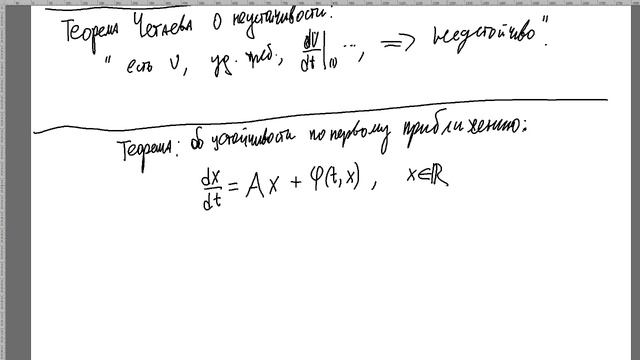 Теорема Четаева о неустойчивости:
" есть V, уд. треб., dV/dt|₍₁₎ ..., => неустойчиво".
Теорема: об устойчивости по первому приближению:
dx/dt = Ax + φ(t,x), x∈ℝ